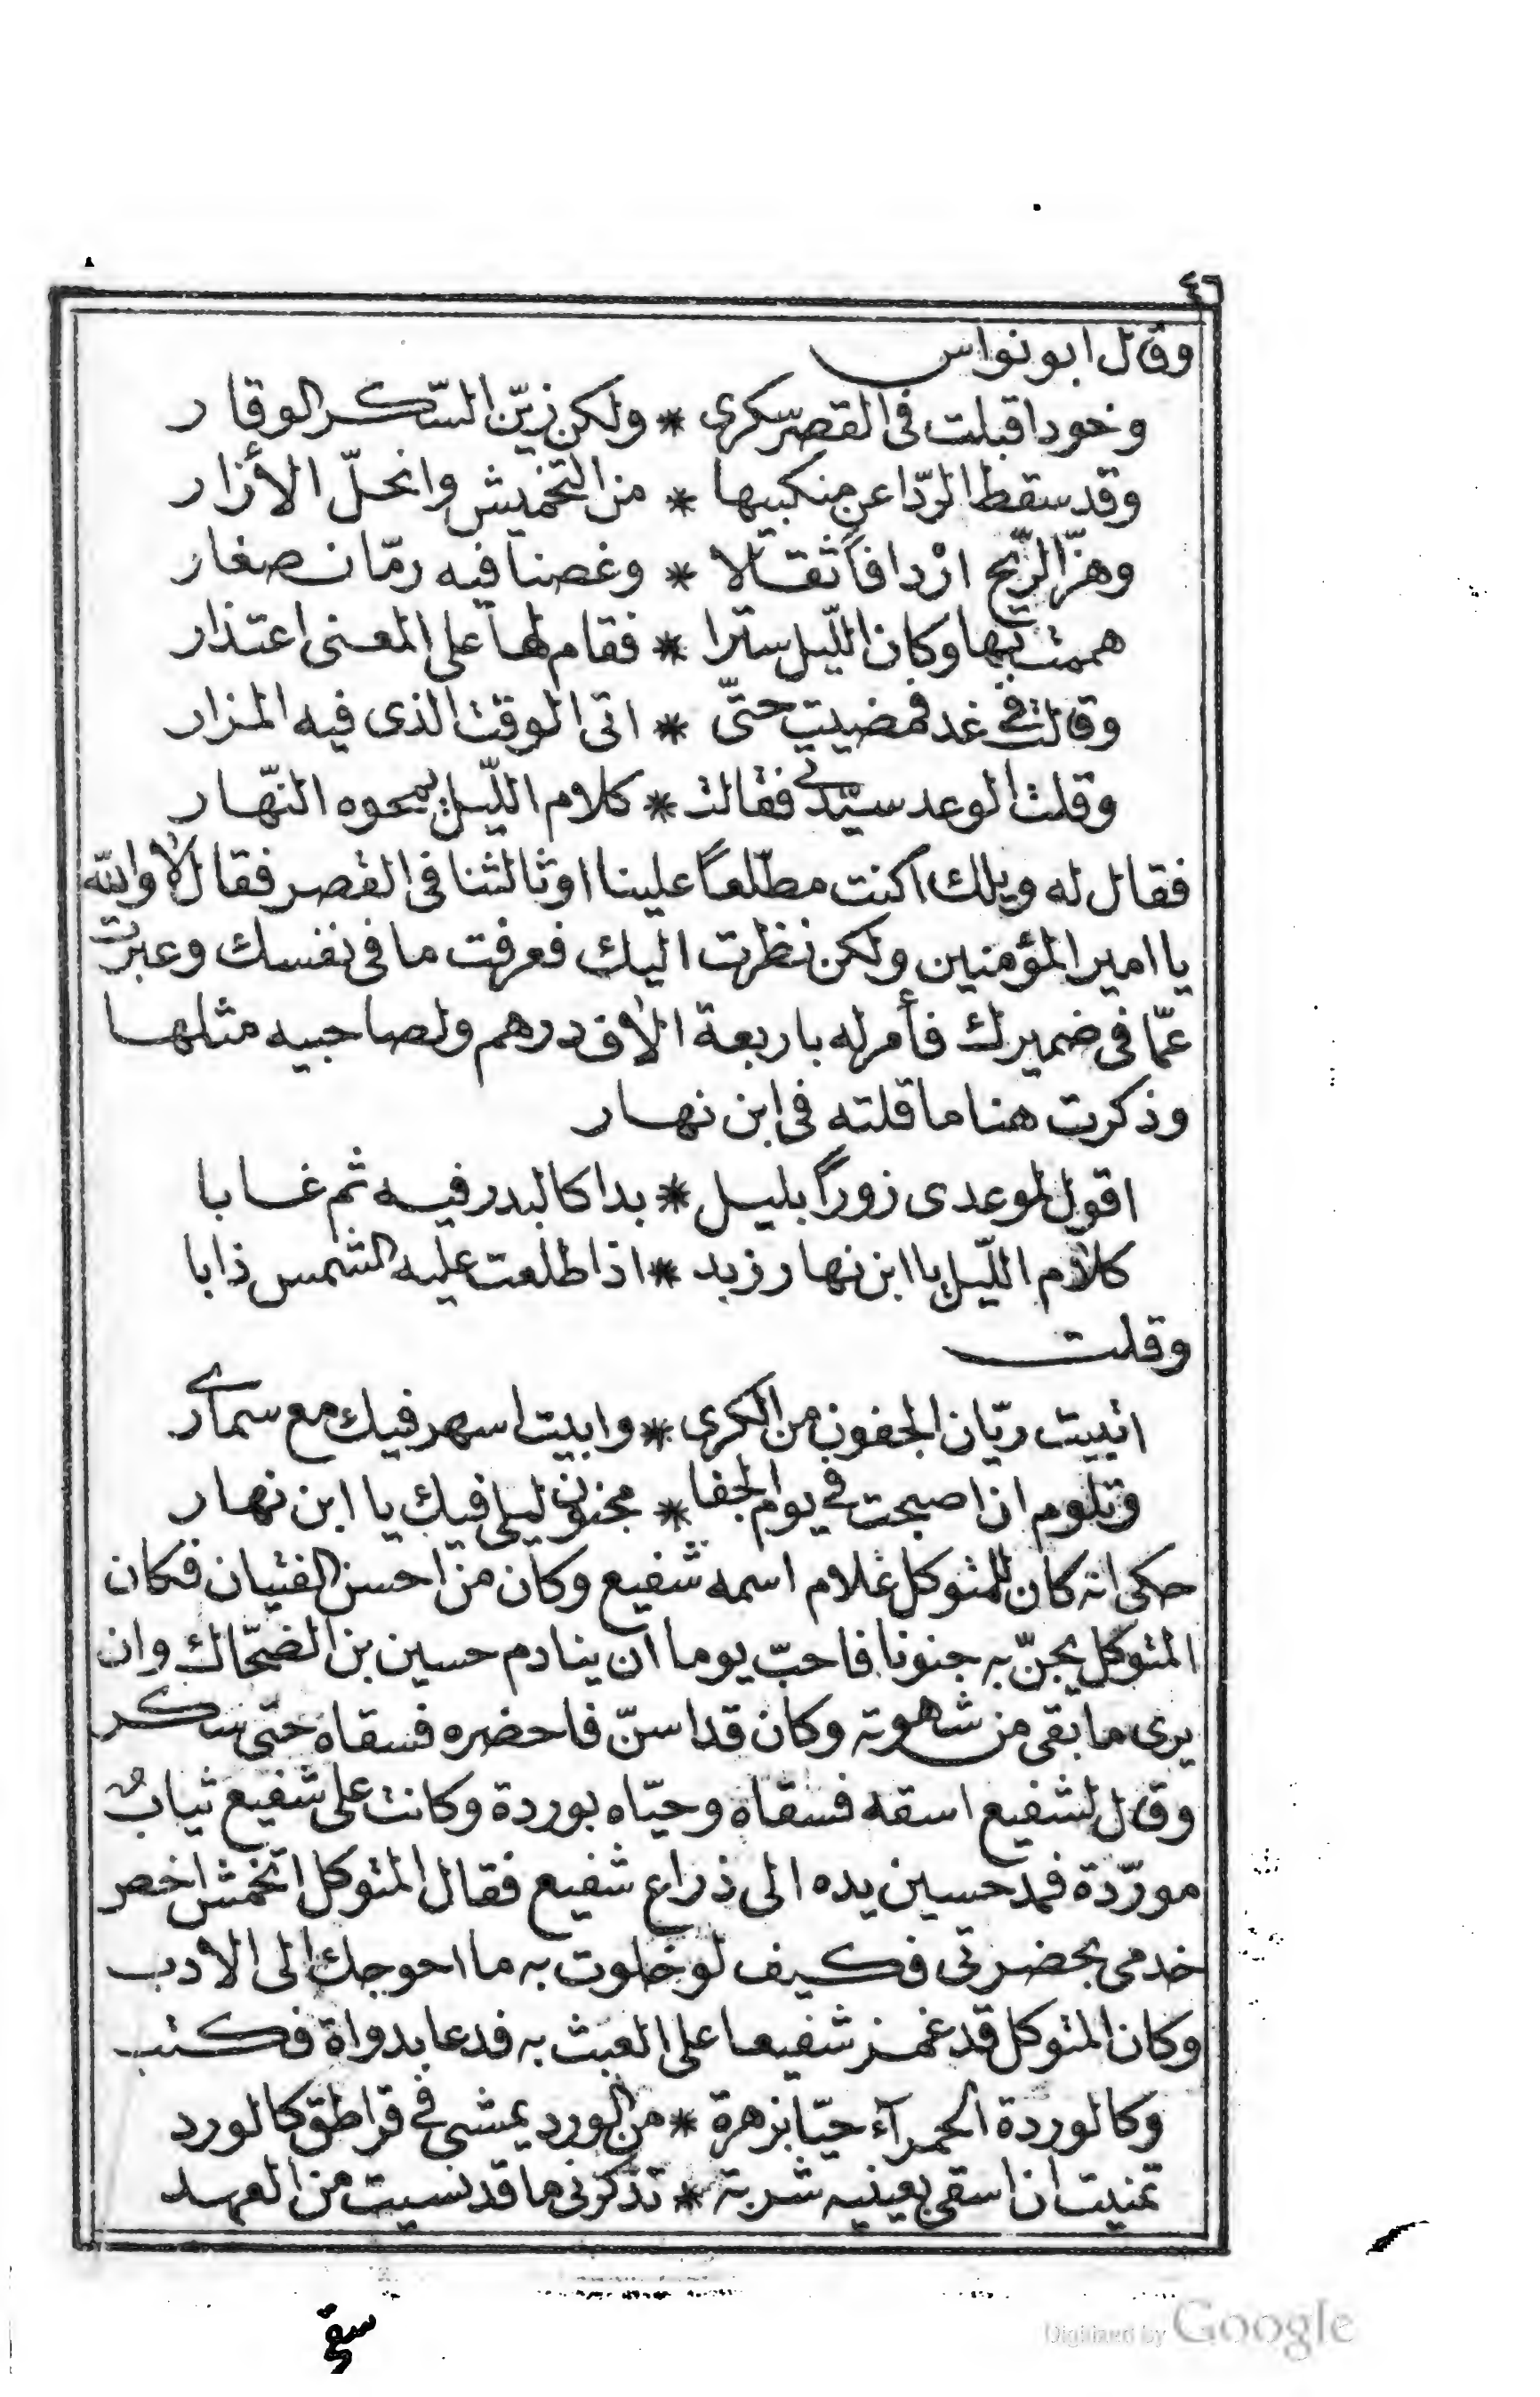 ٤٦
وقال ابو نواس
وخود اقبلت فى القصر سكرى * ولكن زيّن السّكر الوقار
وقد سقط الردّا عن منكبيها * من التخميش وانحلّ الأزار
وهزّ الرّيح ارْدافاً ثقالا * وغصنا فيه رمّان صغار
هممت بها وكان اللّيل سترا * فقام لها على المعنى اعتذار
وقالت فى غد فمضيت حتّى * اتى الوقت الذى فيه المزار
وقلت الوعد سيّدتى فقالت * كلام اللّيل يمحوه النّهار
فقال له ويلك اكنت مطّلعاً علينا او ثالثنا فى القصر فقال لا والله
يا امير المؤمنين ولكن نظرت اليك فعرفت ما فى نفسك وعبرت
عمّا فى ضميرك فأمر له باربعة الاف درهم ولصاحبيه مثلها
وذكرت هنا ما قلته فى ابن نهار
اقول لموعدى زوراً بليل * بدا كالبدر فيه ثم غابا
كلام اللّيل يا ابن نهار زبد * اذا طلعت عليه الشمس ذابا
وقلت
اتبيت ريّان الجفون من الكرى * وابيت اسهر فيك مع سمارى
وتلوم ان اصبحت فى يوم الجفا * مجنون ليلى فيك يا ابن نهار
حكى انه كان للمتوكل غلام اسمه شفيع وكان من احسن الفتيان فكان
المتوكل يجنّ به جنونا فاحبّ يوما ان ينادم حسين بن الضحّاك وان
يرى ما بقى من شهوته وكان قد اسنّ فاحضره فسقاه حتى سكر
وقال لشفيع اسقه فسقاه وحيّاه بوردة وكانت على شفيع ثيابٌ
مورّدة فمد حسين يده الى ذراع شفيع فقال المتوكل اتخمش اخص
خدمى بحضرتى فكيف لو خلوت به ما احوجك الى الادب
وكان المتوكل قد غمز شفيعا على العبث به فدعا بدواة فكتب
وكالوردة الحمرآء حيّا بزهرة * من الورد يمشى فى قراطق كالورد
تمنيت ان اسقى بعينيه شربة * تذكرنى ما قد نسيت من العهد
سقى
Digitized by Google